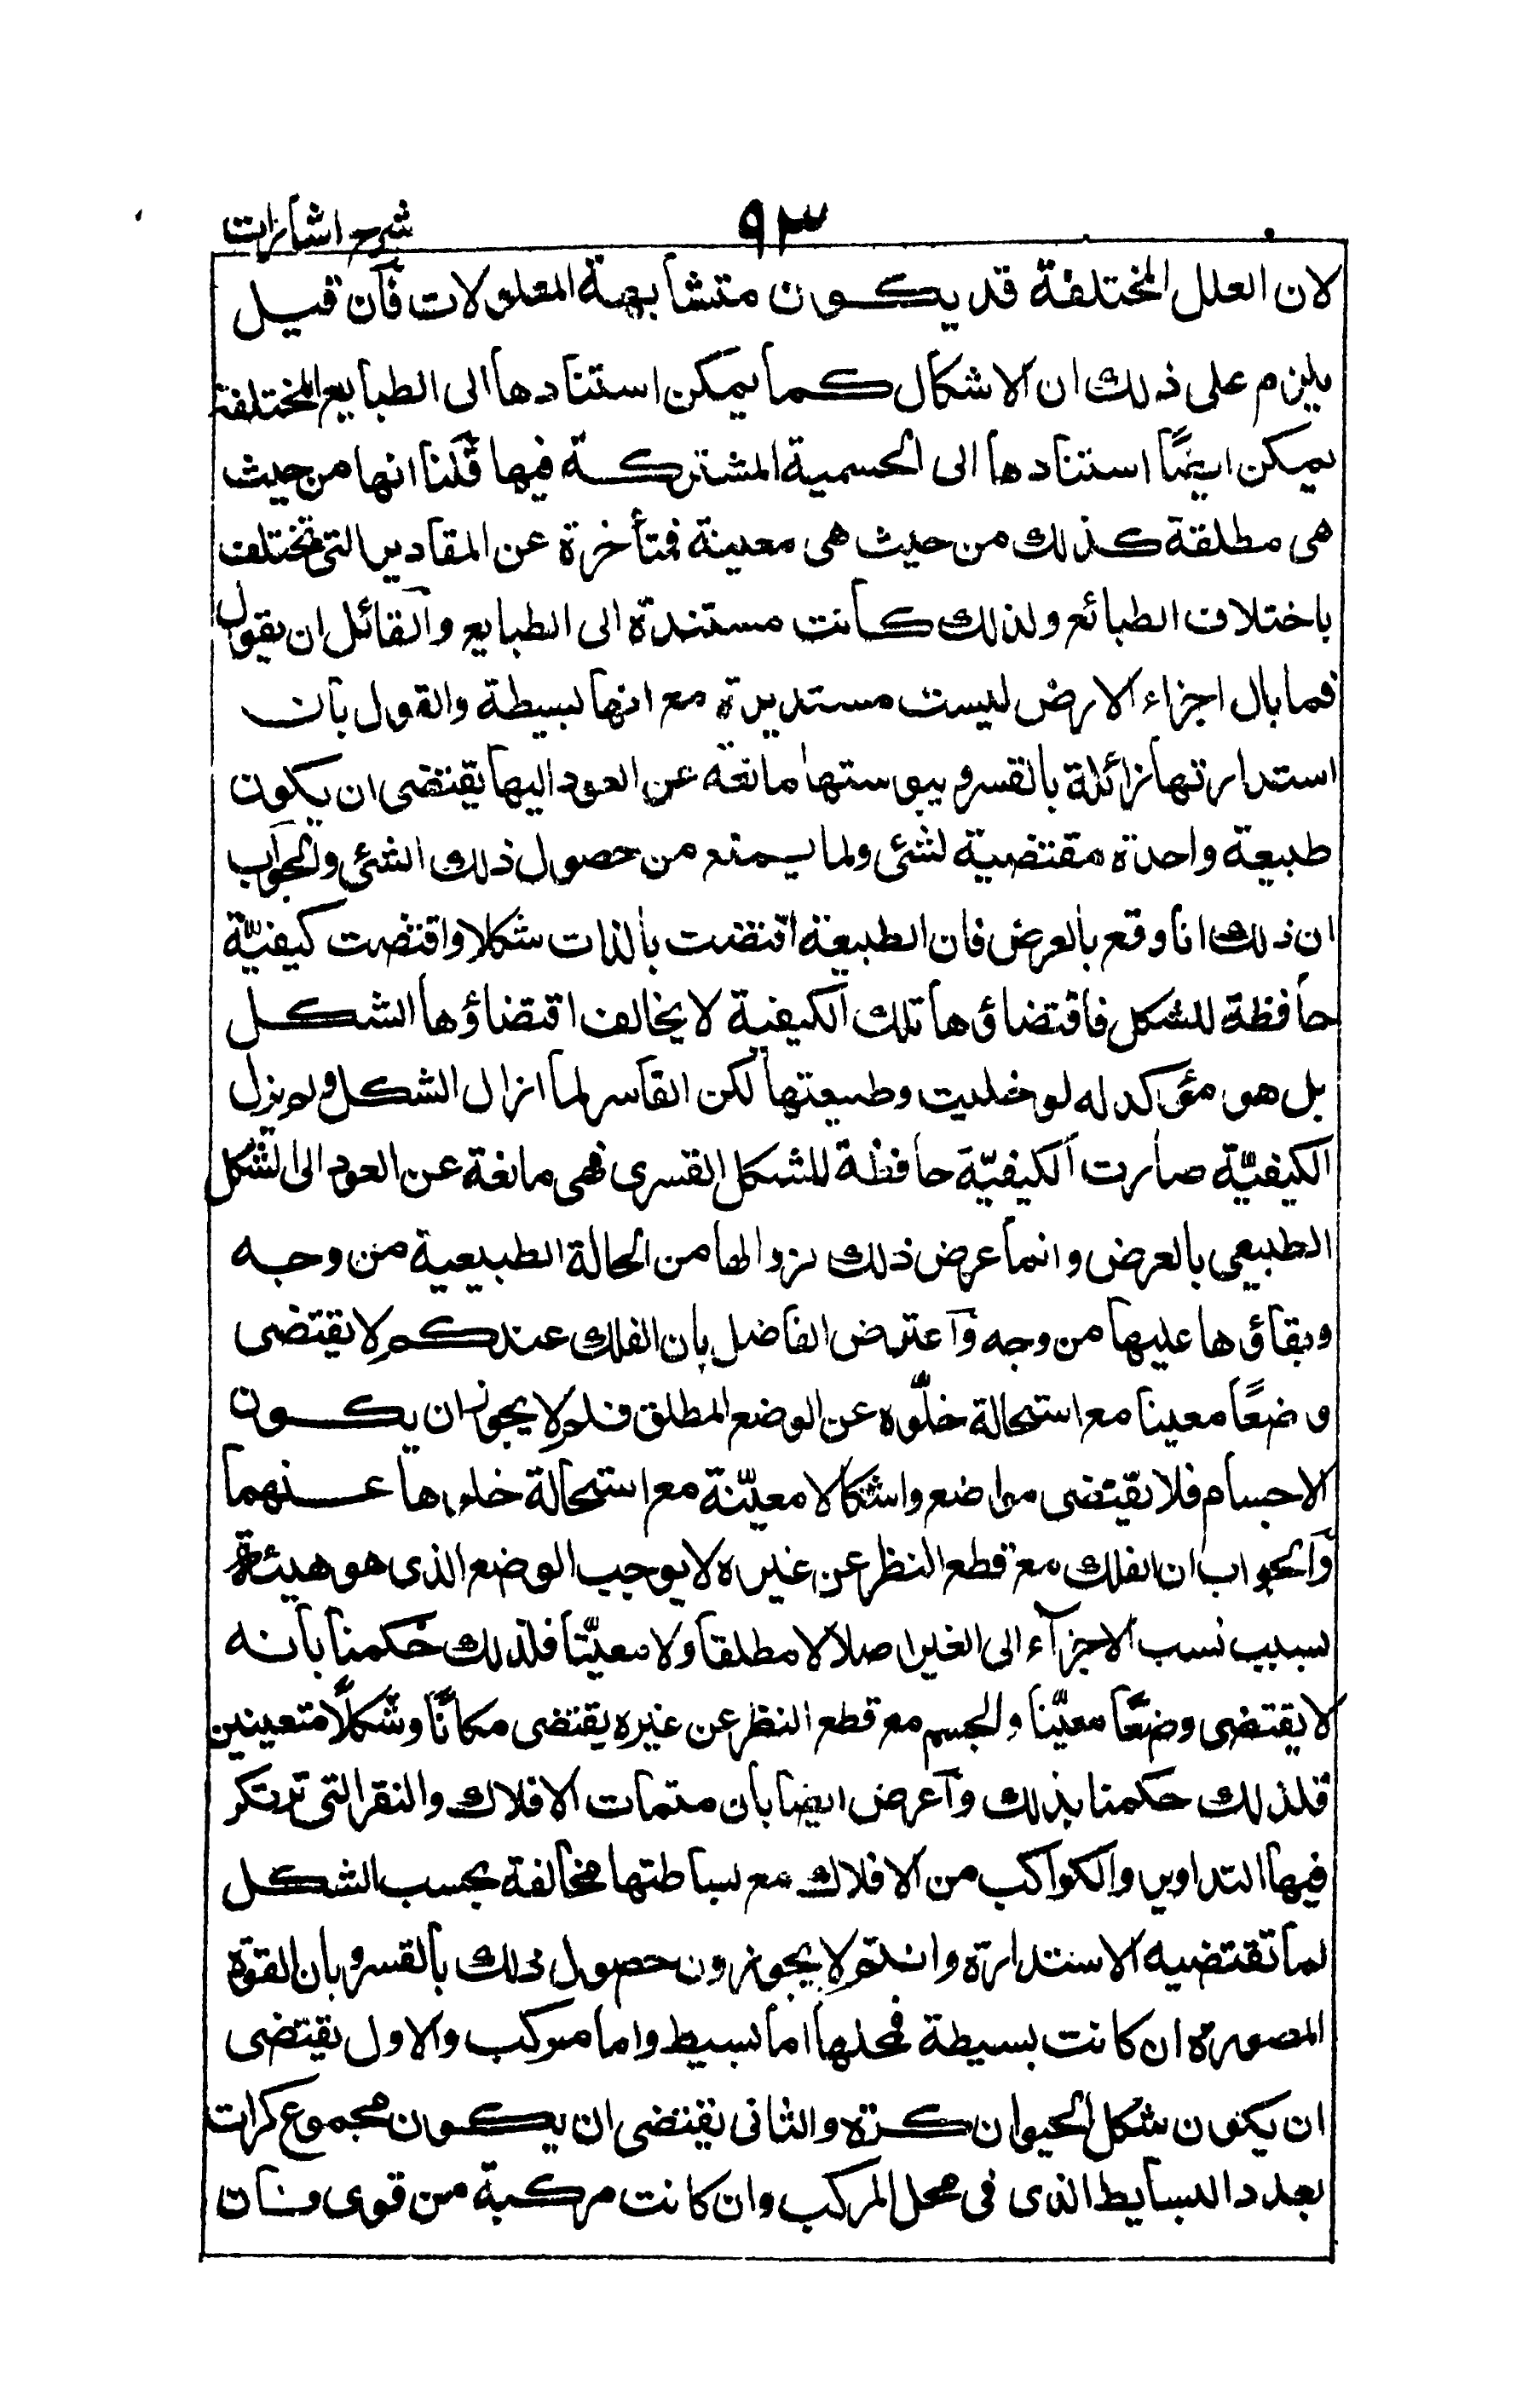 شرح اشارات
٩٣
لان العلل المختلفة قد يكون متشابهة المعلولات فان قيل
يلزم على ذلك ان الاشكال كما يمكن استنادها الى الطبايع المختلفة
يمكن ايضًا استنادها الى الجسمية المشتركة فيها قلنا انها من حيث
هى مطلقة كذلك من حيث هى معينة فمتأخرة عن المقادير التى تختلف
باختلاف الطبائع ولذلك كانت مستندة الى الطبايع والقائل ان يقول
فما بال اجزاء الارض ليست مستديرة مع انها بسيطة والقول بان
استدارتها زائلة بالقسر ويبوستها مانعة عن العود اليها يقتضى ان يكون
طبيعة واحدة مقتضية لشئى ولما يمنع من حصول ذلك الشئى والجواب
ان ذلك انا وقع بالعرض فان الطبيعة اقتضت بالذات شكلا واقتضت كيفيّة
حافظة للشكل فاقتضاؤها تلك الكيفية لا يخالف اقتضاؤها الشكل
بل هو مؤكد له لو خليت وطبيعتها لكن القاسر لما ازال الشكل ولم يزل
الكيفيّة صارت الكيفيّة حافظة للشكل القسرى فهى مانعة عن العود الى الشكل
الطبيعى بالعرض وانما عرض ذلك لزوالها من الحالة الطبيعية من وجه
وبقاؤها عليها من وجه واعترض الفاضل بان الفلك عندكم لا يقتضى
وضعًا معينا مع استحالة خلوّه عن الوضع المطلق فلم لا يجوز ان يكون
الاجسام فلا يقتضى مواضع واشكالا معيّنة مع استحالة خلوها عنهما
والجواب ان الفلك مع قطع النظر عن غيره لا يوجب الوضع الذى هو هيئة
بسبب نسب الاجزآء الى الغير اصلا لا مطلقا ولا معيّنا فلذلك حكمنا بانه
لا يقتضى وضعًا معيّنا والجسم مع قطع النظر عن غيره يقتضى مكانًا وشكلًا متعينين
فلذلك حكمنا بذلك واعرض ايضا بان متممات الافلاك والنقر التى ترتكز
فيها التداوير والكواكب من الافلاك مع بساطتها مخالفة بحسب الشكل
لما تقتضيه الاستدارة وانتم لا يجوزون حصول ذلك بالقسر وبان القوة
المصورة ان كانت بسيطة فمحلها اما بسيط واما مركب والاول يقتضى
ان يكون شكل الحيوان كرة والثانى يقتضى ان يكون مجموع كرات
بعدد البسايط الذى فى محل المركب وان كانت مركبة من قوى فان